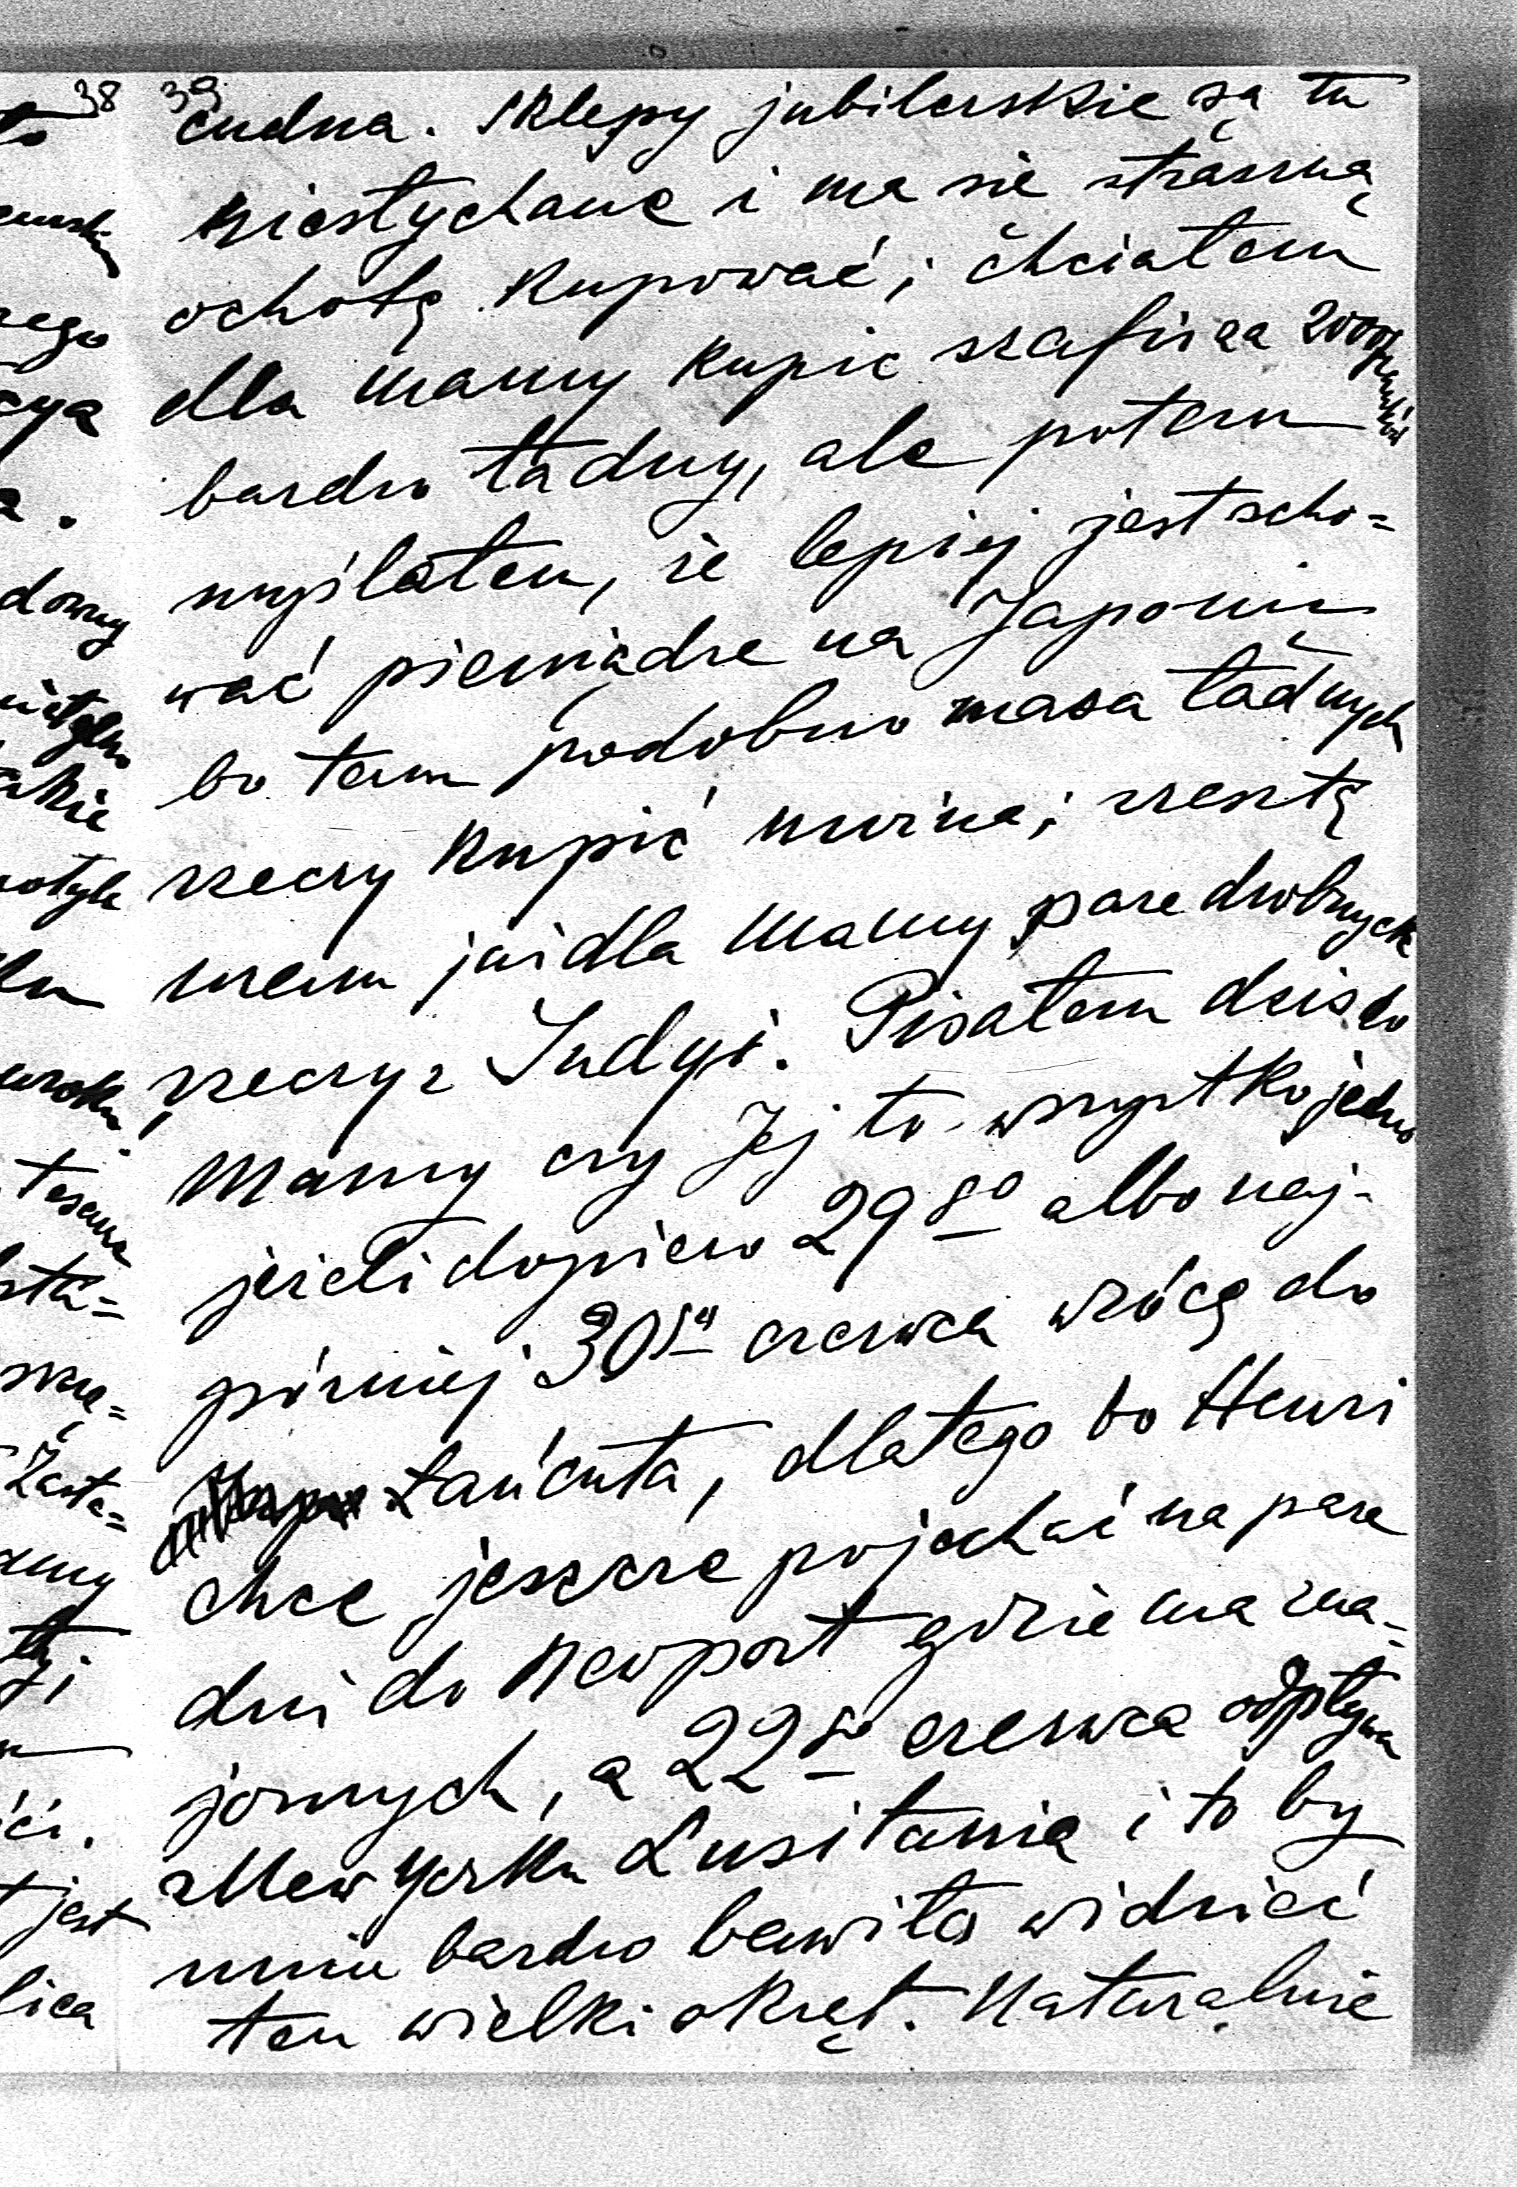 38 39
cudna. Sklepy jubilerskie są tu
niesłychane i ma sie straszną
ochotę kupować; chciałem
dla Mamy kupic szafir za 2000 franków
bardzo ładny, ale potem
myślałem, że lepiej jest scho=
wać pieniądze na Japonię
bo tam podobno masa ładnych
rzeczy kupić można; zresztą
mam już dla Mamy pare drobnych
rzeczy z Indyi. Pisałem dziś do
Mamy czy Jej to wszystko jedno
jeżeli dopiero 29go albo naj-
pózniej 30go czerwca wrócę do
Łańcuta, dlatego bo Henri
chce jeszcze pojechać na pare
dni do Newport gdzie ma zna=
jomych, a 22go czerwca odpływa
z New Yorku Lusitania i to by
mnie bardzo bawiło widzieć
ten wielki okręt. Naturalnie